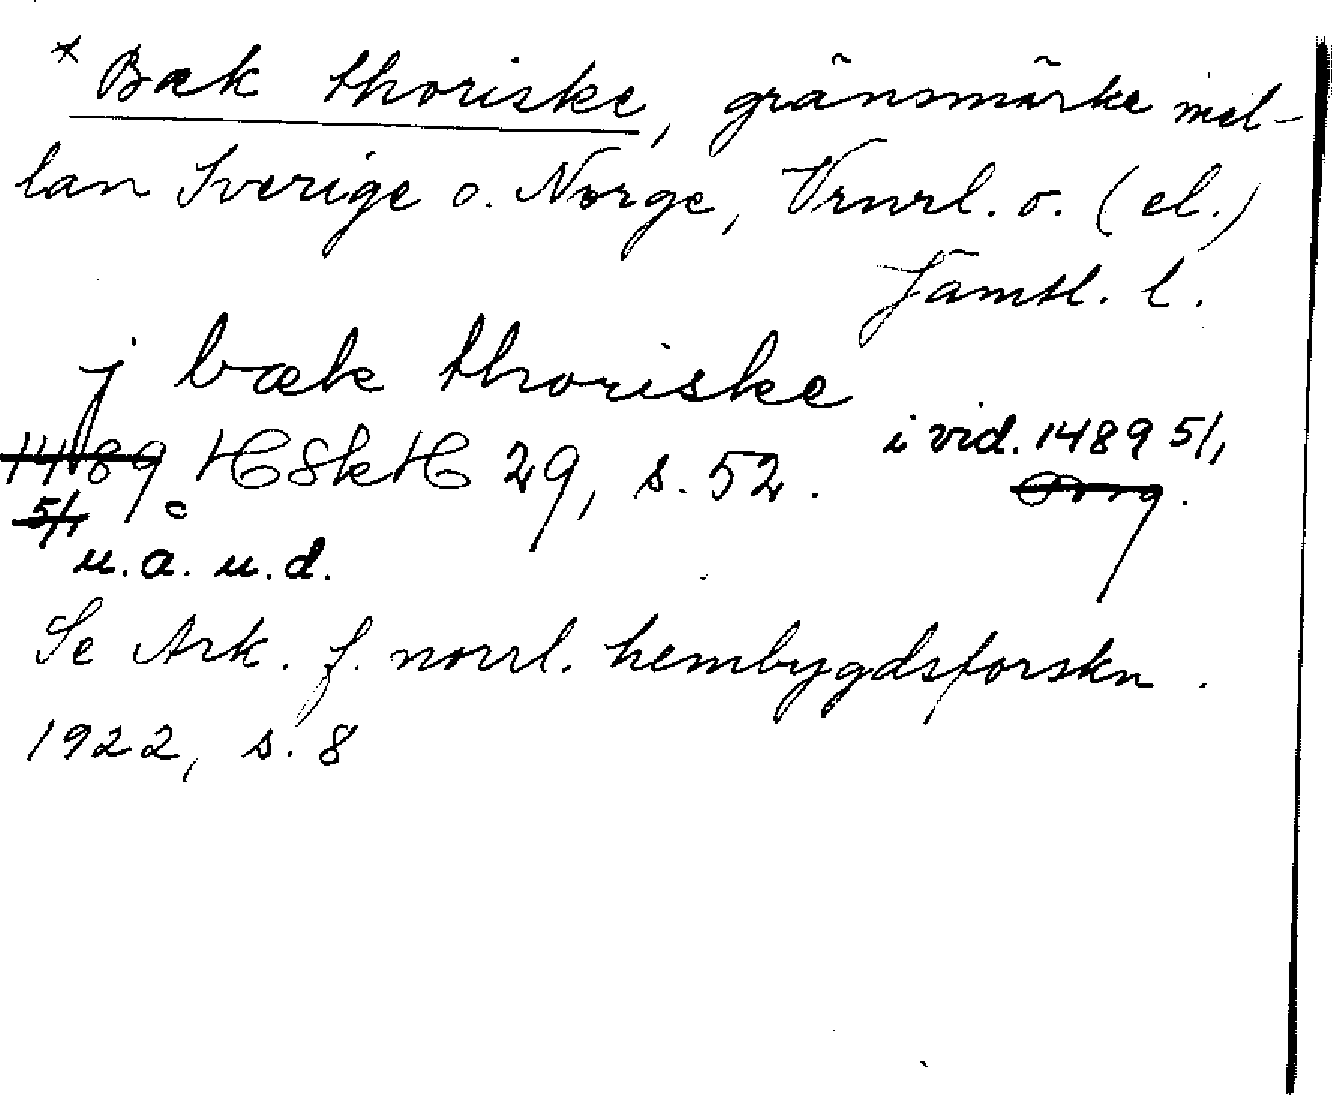 *Bæk thoriske, gränsmärke mel-
lan Sverige o. Norge, Vrmrl. o. (el.)
Jämtl. l.
j bæk thoriske
i vid. 1489 5/1
1489 HSkH 29, s. 52.
5/1
u.å. u.d.
Se Ark. f. norrl. hembygdsforskn.
1922, s. 8